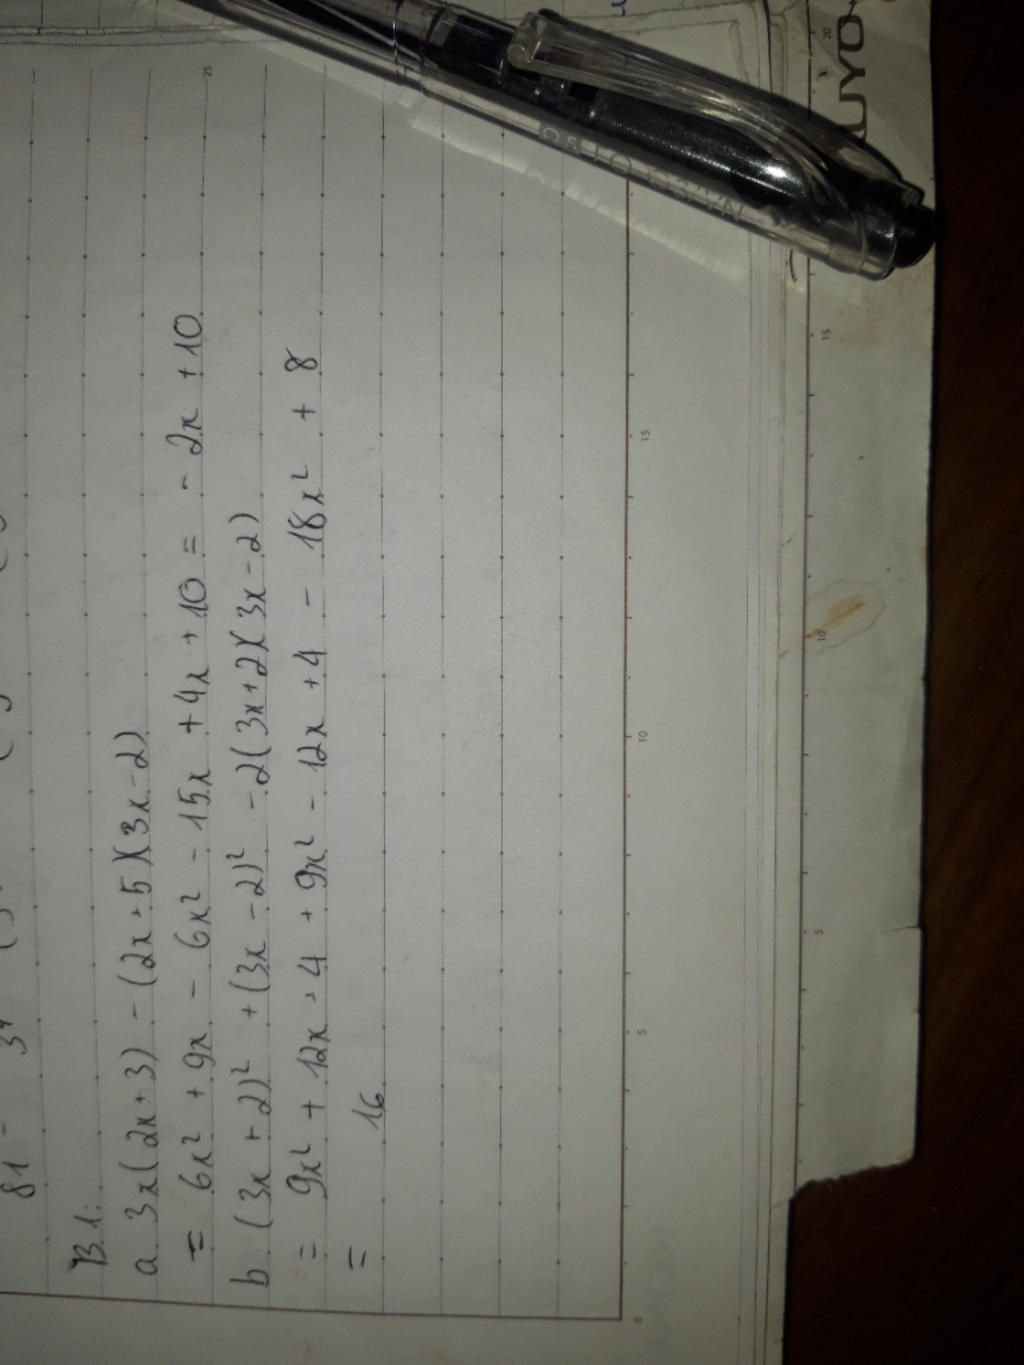 81 - 3⁴
B.1:
a. 3x(2x+3) - (2x+5)(3x-2)
= 6x² + 9x - 6x² - 15x + 4x + 10 = - 2x + 10
b (3x + 2)² + (3x - 2)² - 2(3x+2)(3x-2)
= 9x² + 12x + 4 + 9x² - 12x + 4 - 18x² + 8
= 16
25
0 5 10 15
5 10 15 20
UYO